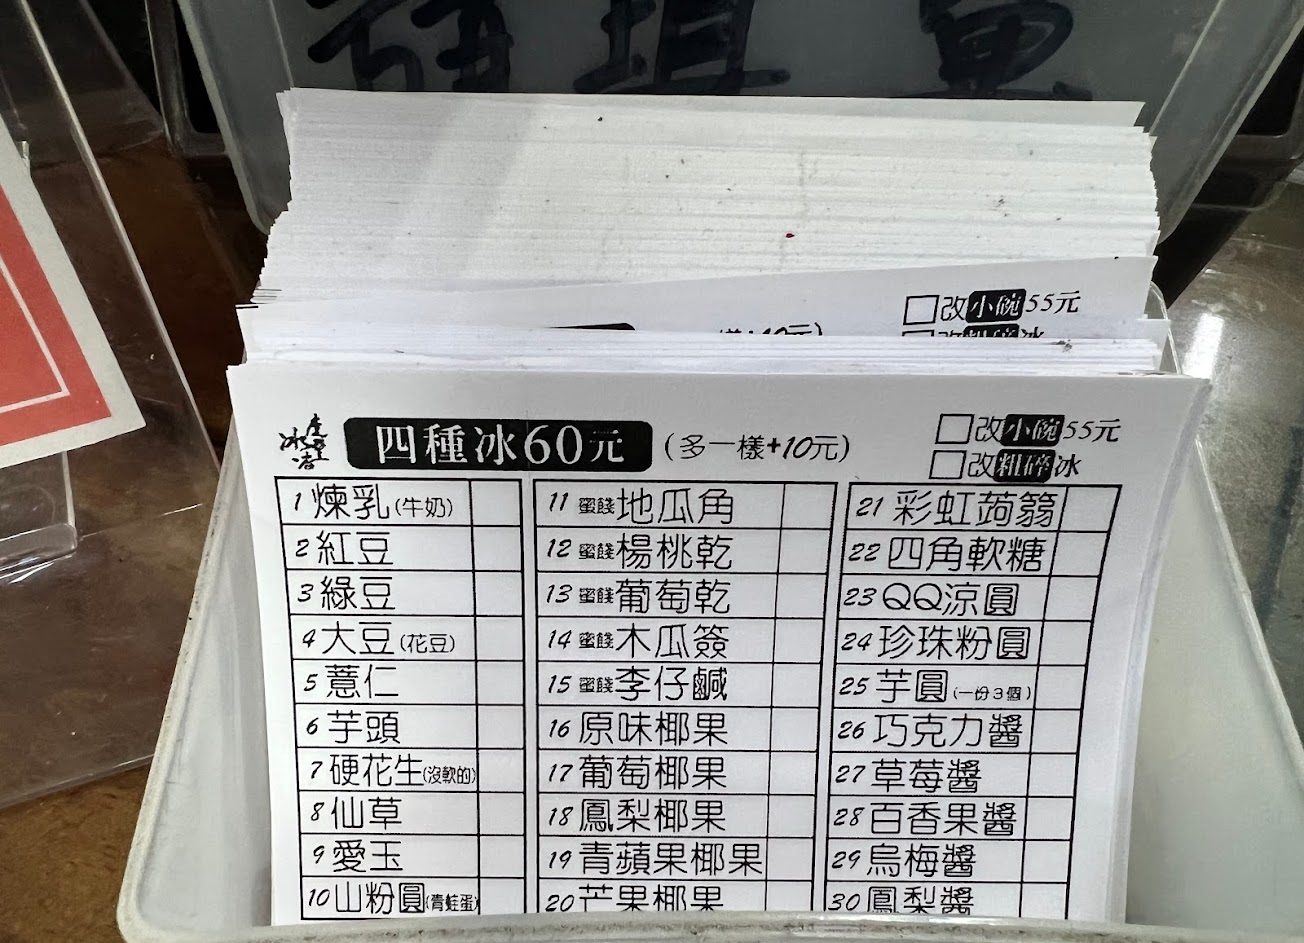 改小碗55元
四種冰60元 (多一樣+10元)
改小碗55元
改粗碎冰
1 煉乳(牛奶)
2 紅豆
3 綠豆
4 大豆(花豆)
5 薏仁
6 芋頭
7 硬花生(沒軟的)
8 仙草
9 愛玉
10 山粉圓(青蛙蛋)
11 蜜餞地瓜角
12 蜜餞楊桃乾
13 蜜餞葡萄乾
14 蜜餞木瓜簽
15 蜜餞李仔鹹
16 原味椰果
17 葡萄椰果
18 鳳梨椰果
19 青蘋果椰果
20 芒果椰果
21 彩虹蒟蒻
22 四角軟糖
23 QQ涼圓
24 珍珠粉圓
25 芋圓(一份3個)
26 巧克力醬
27 草莓醬
28 百香果醬
29 烏梅醬
30 鳳梨醬